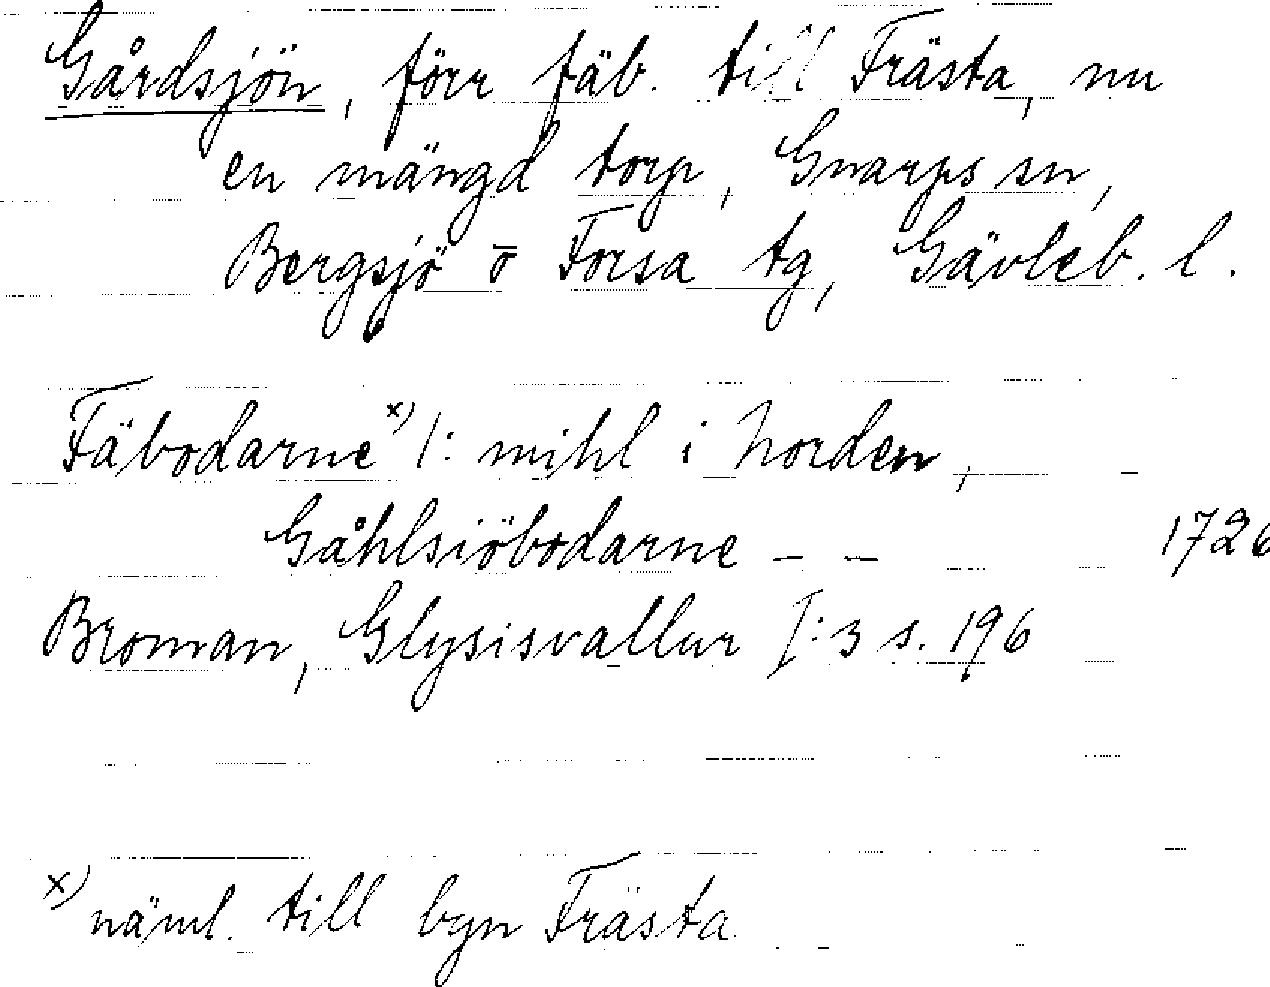 Gårdsjön, förr fäb. till Frästa, nu
en mängd torp, Gnarps sn,
Bergsjö o Forsa tg, Gävleb. l.
Fäbodarne x) /: mihl i Norden,
Gåhlsiöbodarne – – 1726
Broman, Glysisvallur I:3 s. 196
x) näml. till byn Frästa